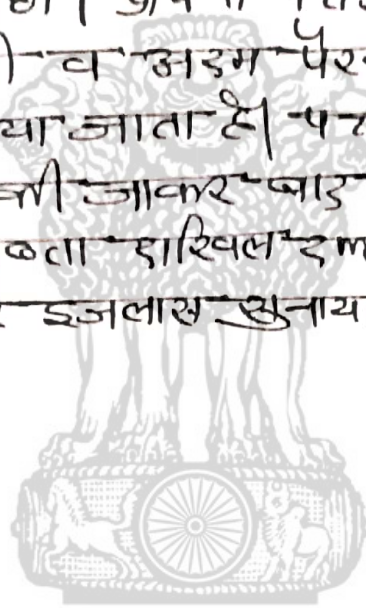 व अदम पैर
या जाता है। प
की जाकर बाद
दाखिल द
इजलास सुनाय